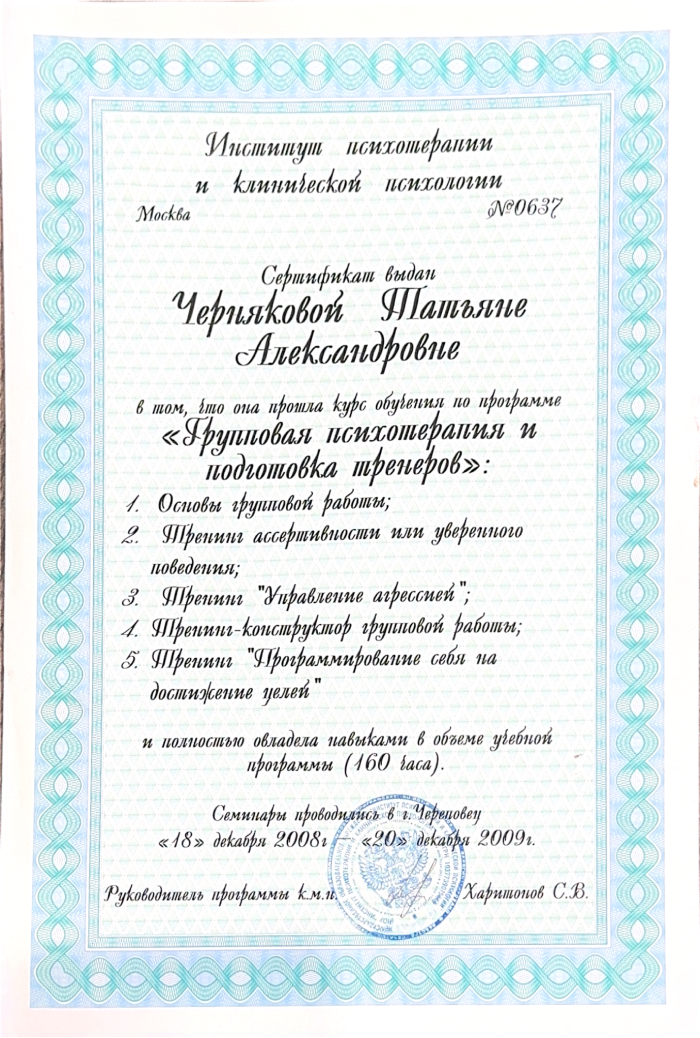 Институт психотерапии
и клинической психологии
Москва №0637
Сертификат выдан
Черняковой Татьяне
Александровне
в том, что она прошла курс обучения по программе
«Групповая психотерапия и
подготовка тренеров»:
1. Основы групповой работы;
2. Тренинг ассертивности или уверенного
поведения;
3. Тренинг "Управление агрессией";
4. Тренинг-конструктор групповой работы;
5. Тренинг "Программирование себя на
достижение целей"
и полностью овладела навыками в объеме учебной
программы (160 часа).
Семинары проводились в г.Череповец
«18» декабря 2008г «20» декабря 2009г.
Руководитель программы к.м.н. Харитонов С.В.